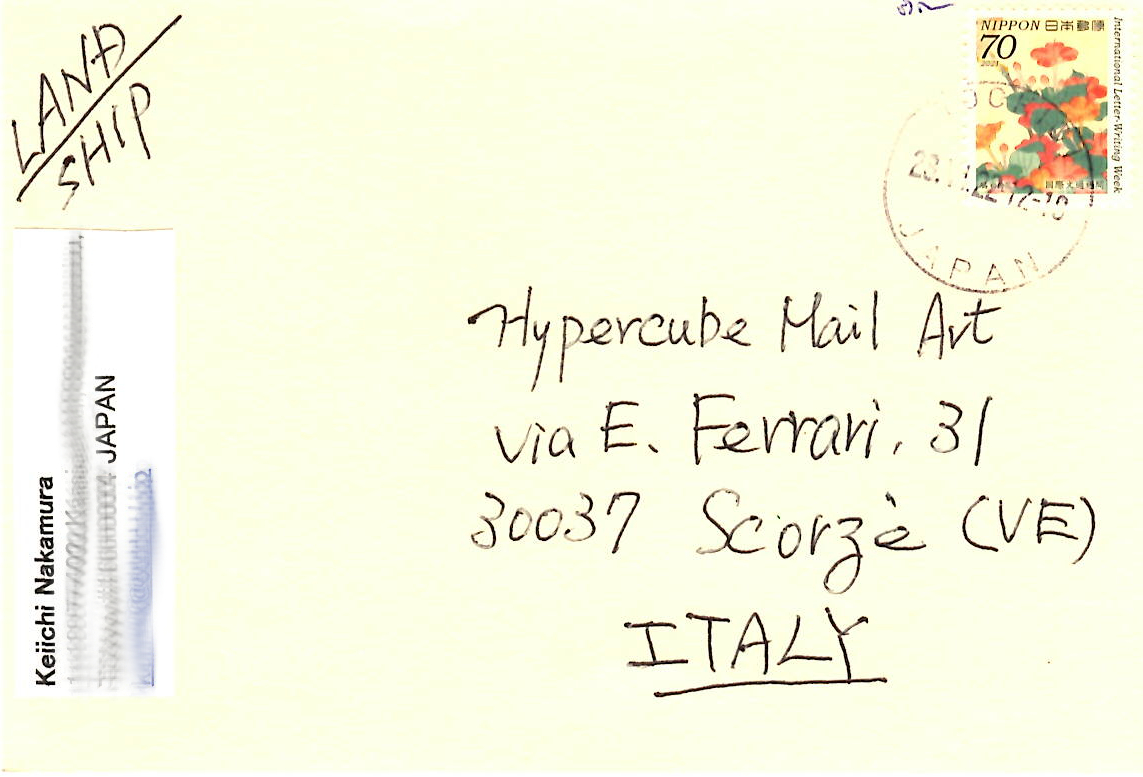 LAND
SHIP
NIPPON 日本郵便
70
2021
International Letter-Writing Week
国際文通週間
JAPAN
Keiichi Nakamura
JAPAN
Hypercube Mail Art
via E. Ferrari, 31
30037 Scorzè (VE)
ITALY